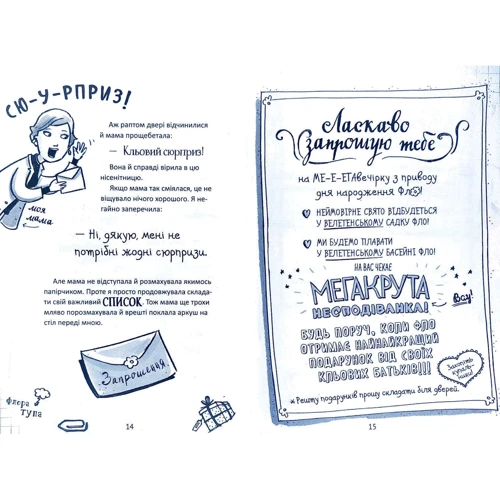 СЮ-У-РПРИЗ!
моя
мама
Аж раптом двері відчинилися
й мама прощебетала:
— Кльовий сюрприз!
Вона й справді вірила в цю
нісенітницю.
Якщо мама так сміялася, це не
віщувало нічого хорошого. Я не-
гайно заперечила:
— Ні, дякую, мені не
потрібні жодні сюрпризи.
Але мама не відступала й розмахувала якимось
папірчиком. Проте я просто продовжувала склада-
ти свій важливий СПИСОК. Тож мама ще трохи
мляво порозмахувала й врешті поклала аркуш на
стіл переді мною.
Запрошення
Флора
тупа
14
Ласкаво
запрошую тебе
на МЕ-Е-ЕГАвечірку з приводу
дня народження Фло
НЕЙМОВІРНЕ СВЯТО ВІДБУДЕТЬСЯ
У ВЕЛЕТЕНСЬКОМУ САДКУ ФЛО!
МИ БУДЕМО ПЛАВАТИ
У ВЕЛЕТЕНСЬКОМУ БАСЕЙНІ ФЛО!
НА ВАС ЧЕКАЄ
МЕГАКРУТА
НЕСПОДІВАНКА!
Вау!
БУДЬ ПОРУЧ, КОЛИ ФЛО
ОТРИМАЄ НАЙНАЙКРАЩИЙ
ПОДАРУНОК ВІД СВОЇХ
КЛЬОВИХ БАТЬКІВ!!!
Захопіть
купаль-
ники!
Решту подарунків прошу складати біля дверей.
15